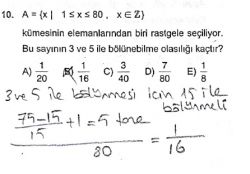 10. A = {x | 1 ≤ x ≤ 80 , x ∈ Z}
kümesinin elemanlarından biri rastgele seçiliyor.
Bu sayının 3 ve 5 ile bölünebilme olasılığı kaçtır?
A) 1/20 B) 1/16 C) 3/40 D) 7/80 E) 1/8
3 ve 5 ile bölünmesi için 15 ile
bölünmeli
(75-15)/15 + 1 = 5 tane
/ 80 = 1/16